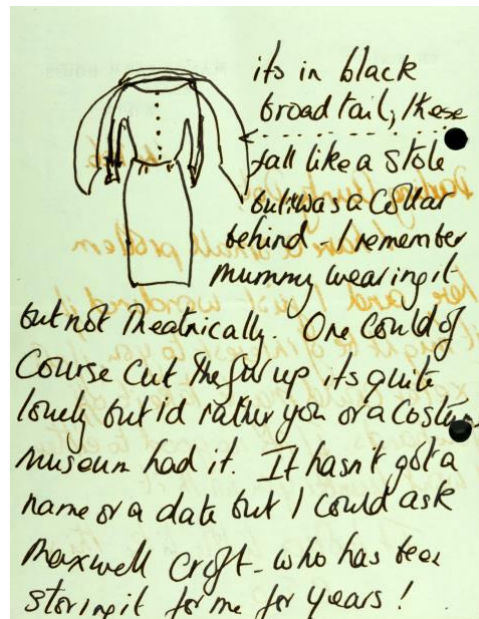 its in black
broad tail, these
fall like a stole
but was a Collar
behind - I remember
mummy wearing it
but not Theatrically. One could of
Course cut the fur up its quite
lovely but id rather you or a Costume
museum had it. It hasn't got a
name or a date but I could ask
Maxwell Croft - who has been
storing it for me for years!